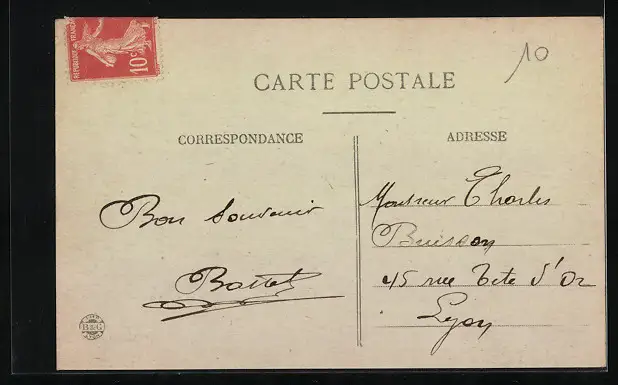 REPUBLIQUE FRANÇAISE
10c
10
CARTE POSTALE
CORRESPONDANCE
ADRESSE
Bon Souvenir
Monsieur Charles
Buisson
45 rue Tete d'Or
Lyon
B&G